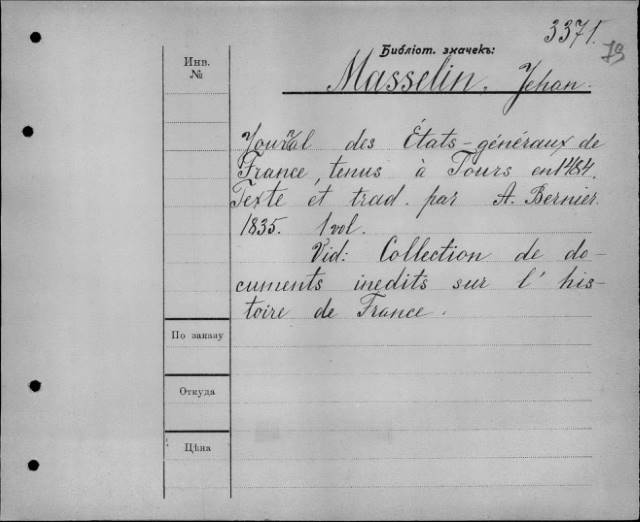 3371.
Библіот. значекъ:
Инв.
№
Masselin, Jehan.
Journal des États-généraux de
France, tenus à Tours en 1484.
Texte et trad. par A. Bernier.
1835. 1 vol.
Vid: Collection de do-
cuments inedits sur l'his-
toire de France.
По заказу
Откуда
Цѣна